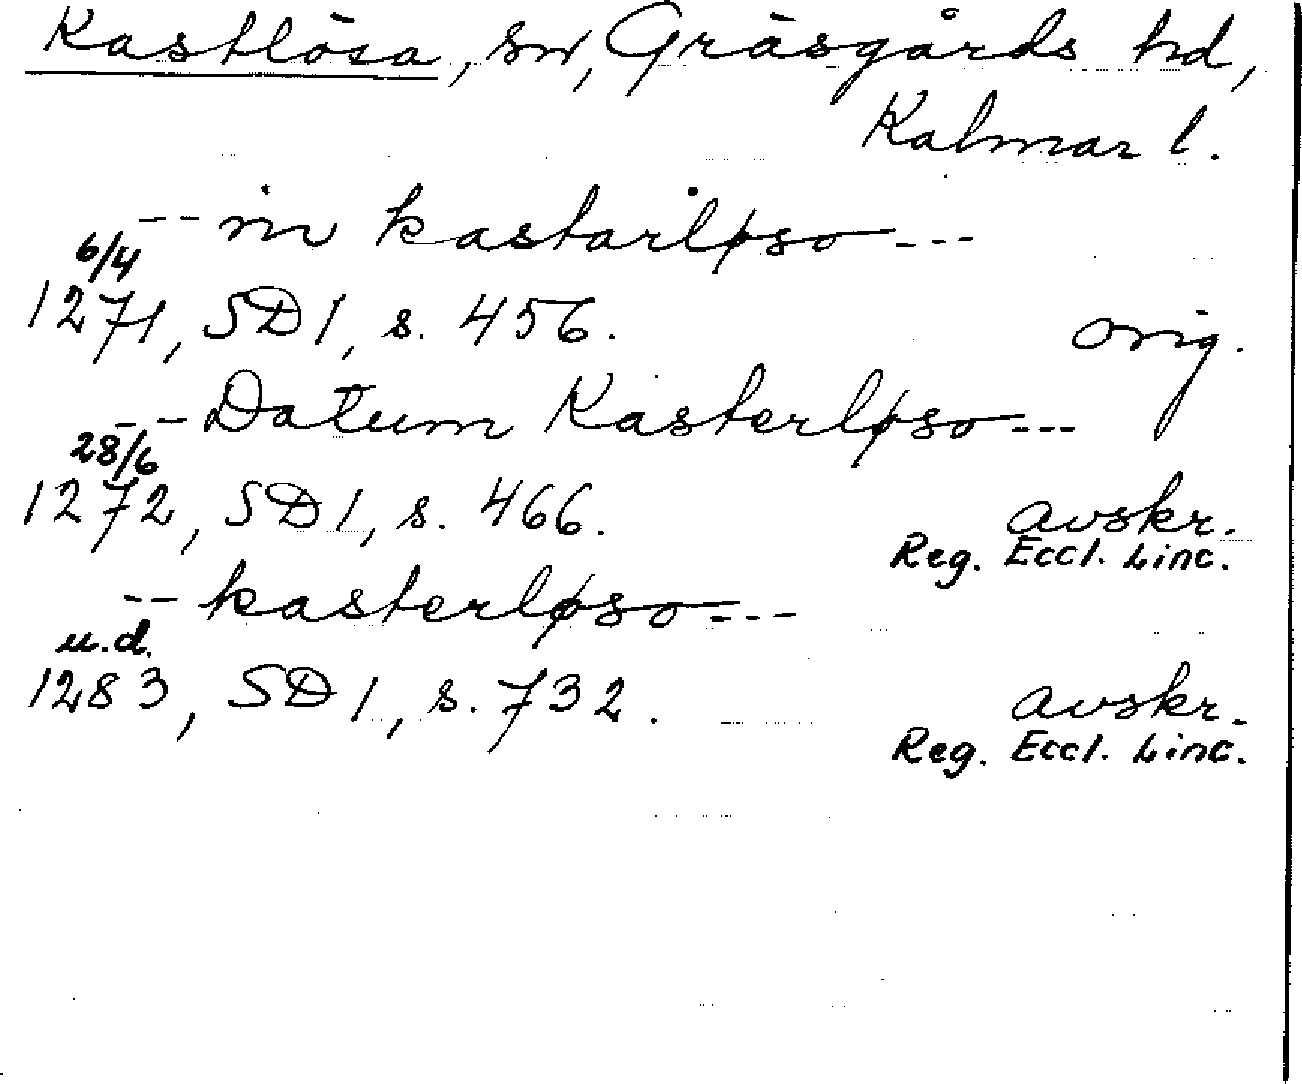 Kastlösa, sn, Gräsgårds hd,
Kalmar l.
-- in kastarløso ---
6/4
1271, SD 1, s. 456. orig.
-- Datum Kasterløso ---
28/6
1272, SD 1, s. 466. avskr.
Reg. Eccl. Linc.
-- kasterløso ---
u.d.
1283, SD 1, s. 732. avskr.
Reg. Eccl. Linc.